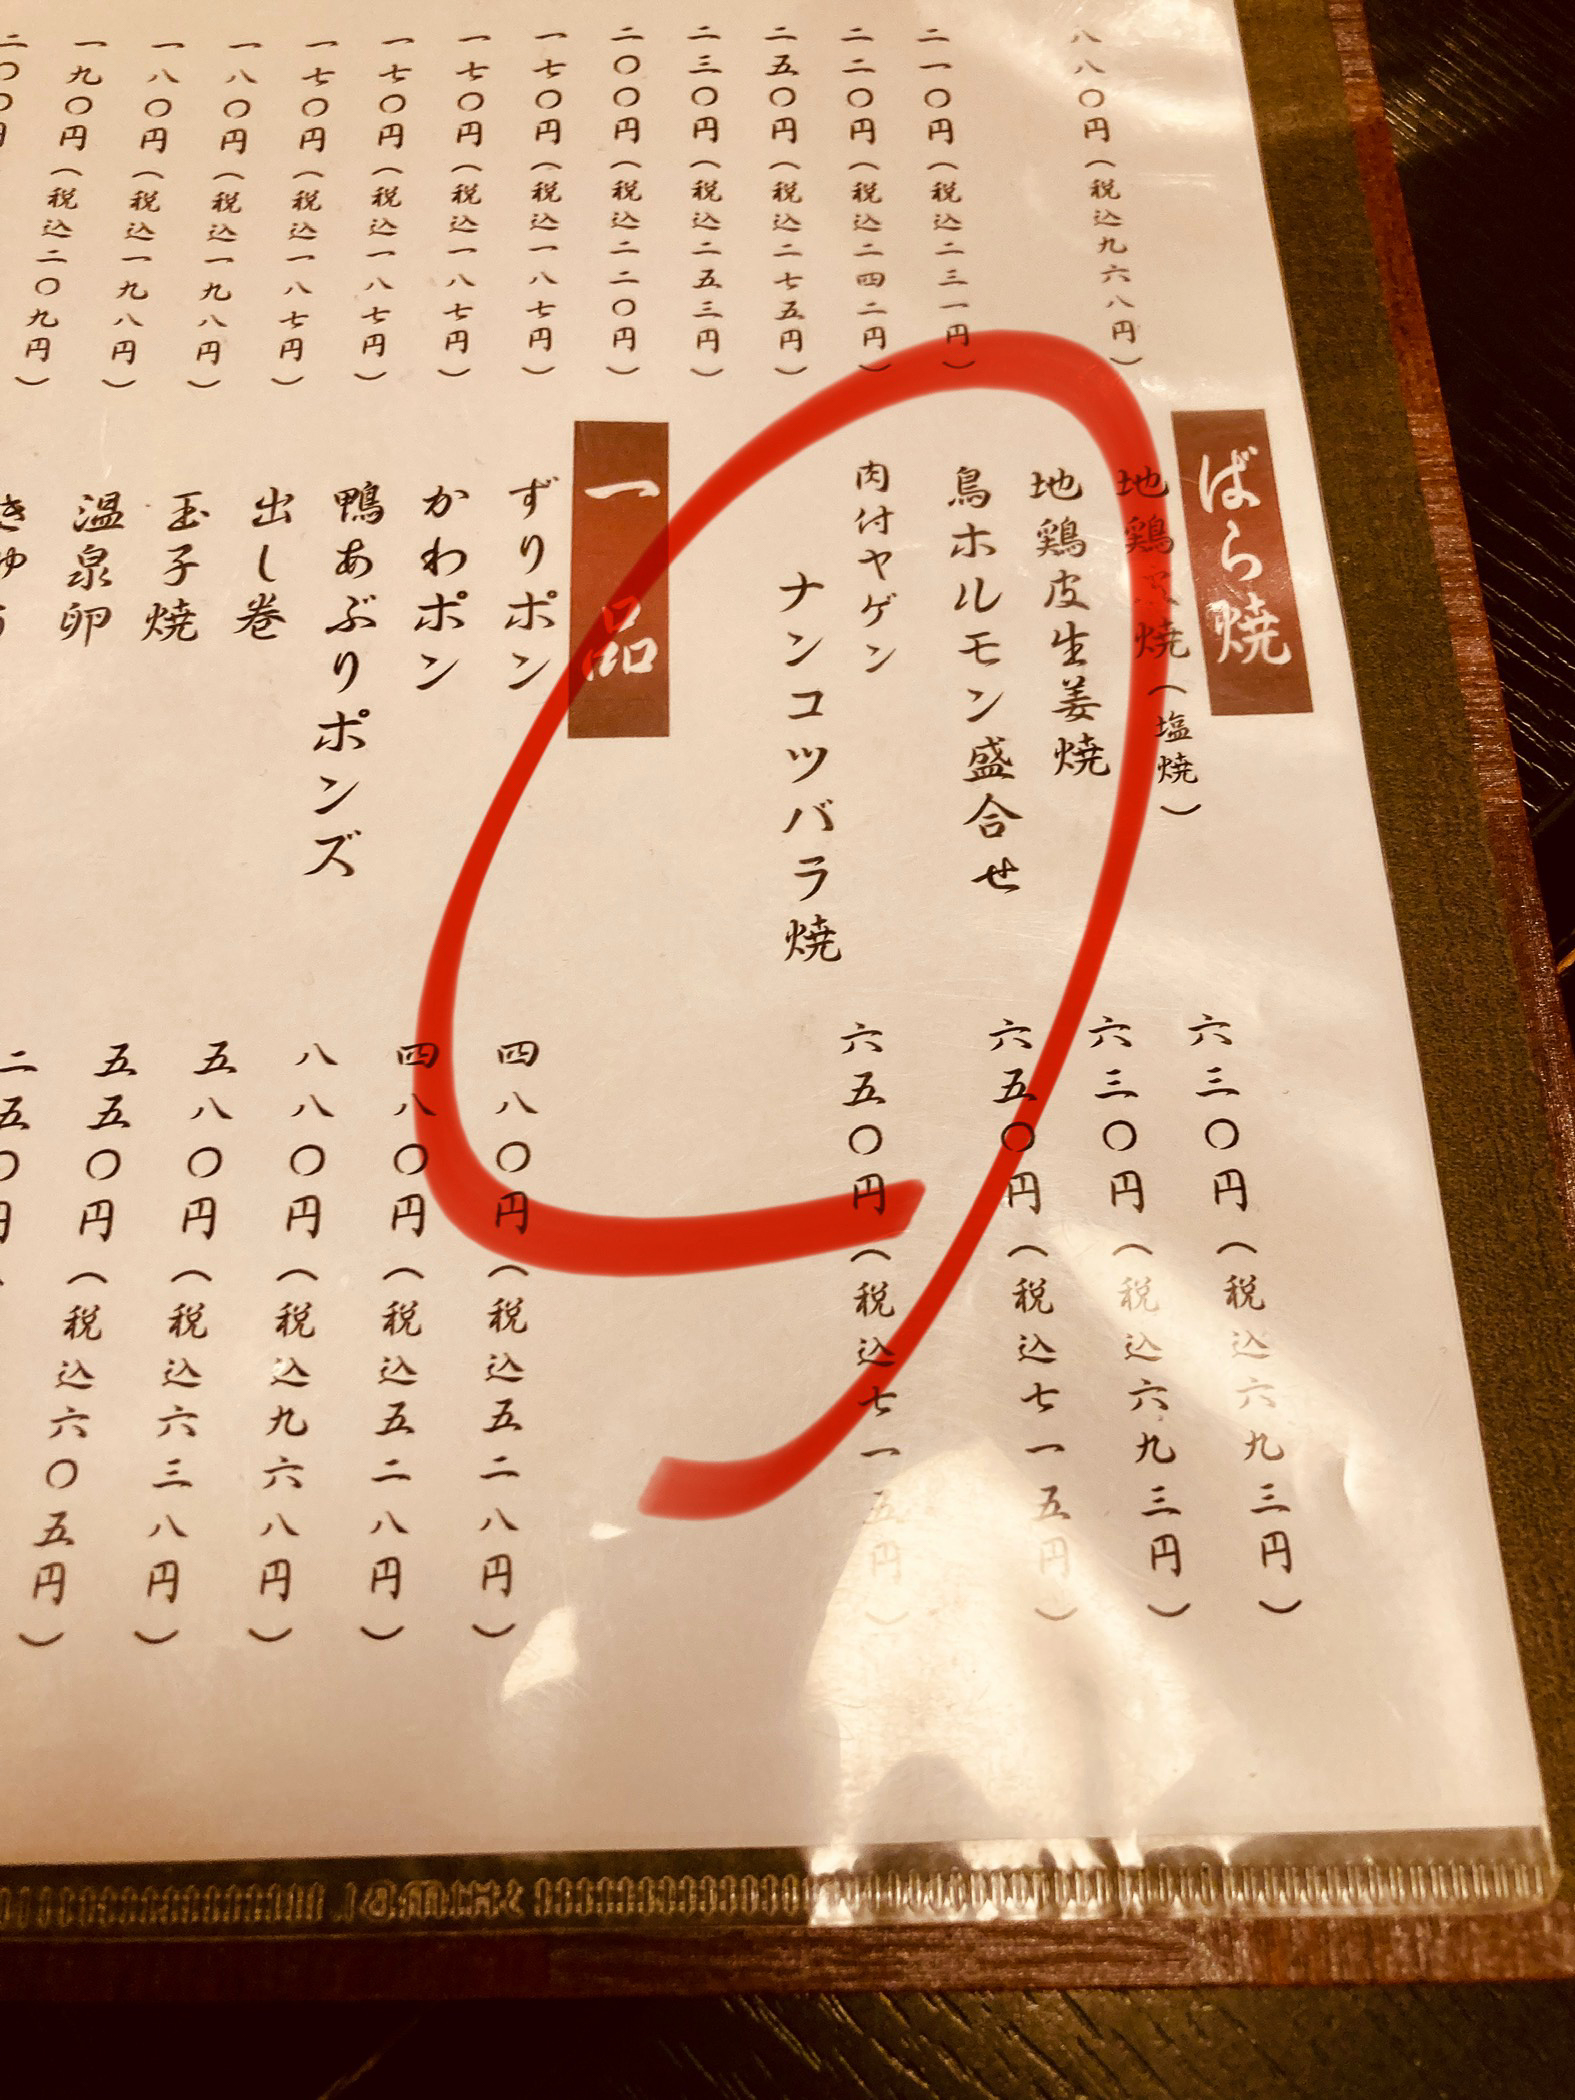 八八〇円(税込九六八円)
二一〇円(税込二三一円)
二二〇円(税込二四二円)
二五〇円(税込二七五円)
二三〇円(税込二五三円)
二〇〇円(税込二二〇円)
一七〇円(税込一八七円)
一七〇円(税込一八七円)
一七〇円(税込一八七円)
一七〇円(税込一八七円)
一八〇円(税込一九八円)
一八〇円(税込一九八円)
一九〇円(税込二〇九円)
ばら焼
地鶏炭焼(塩焼) 六三〇円(税込六九三円)
地鶏皮生姜焼 六三〇円(税込六九三円)
鳥ホルモン盛合せ 六五〇円(税込七一五円)
肉付ヤゲン
ナンコツバラ焼 六五〇円(税込七一五円)
一品
ずりポン 四八〇円(税込五二八円)
かわポン 四八〇円(税込五二八円)
鴨あぶりポンズ 八八〇円(税込九六八円)
出し巻 五八〇円(税込六三八円)
玉子焼 五五〇円(税込六〇五円)
温泉卵